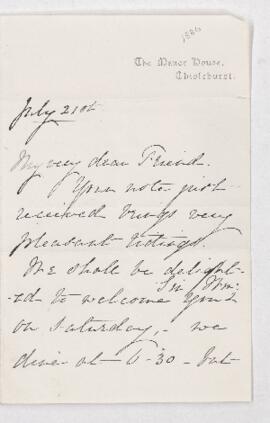 1886
The Manor House,
Chislehurst.
July 21st
My very dear Friend.
Your note just
received brings very
pleasant tidings.
We shall be delight-
-ed to welcome you &
Sir Wm:
on Saturday, - we
dine at 6-30 - but